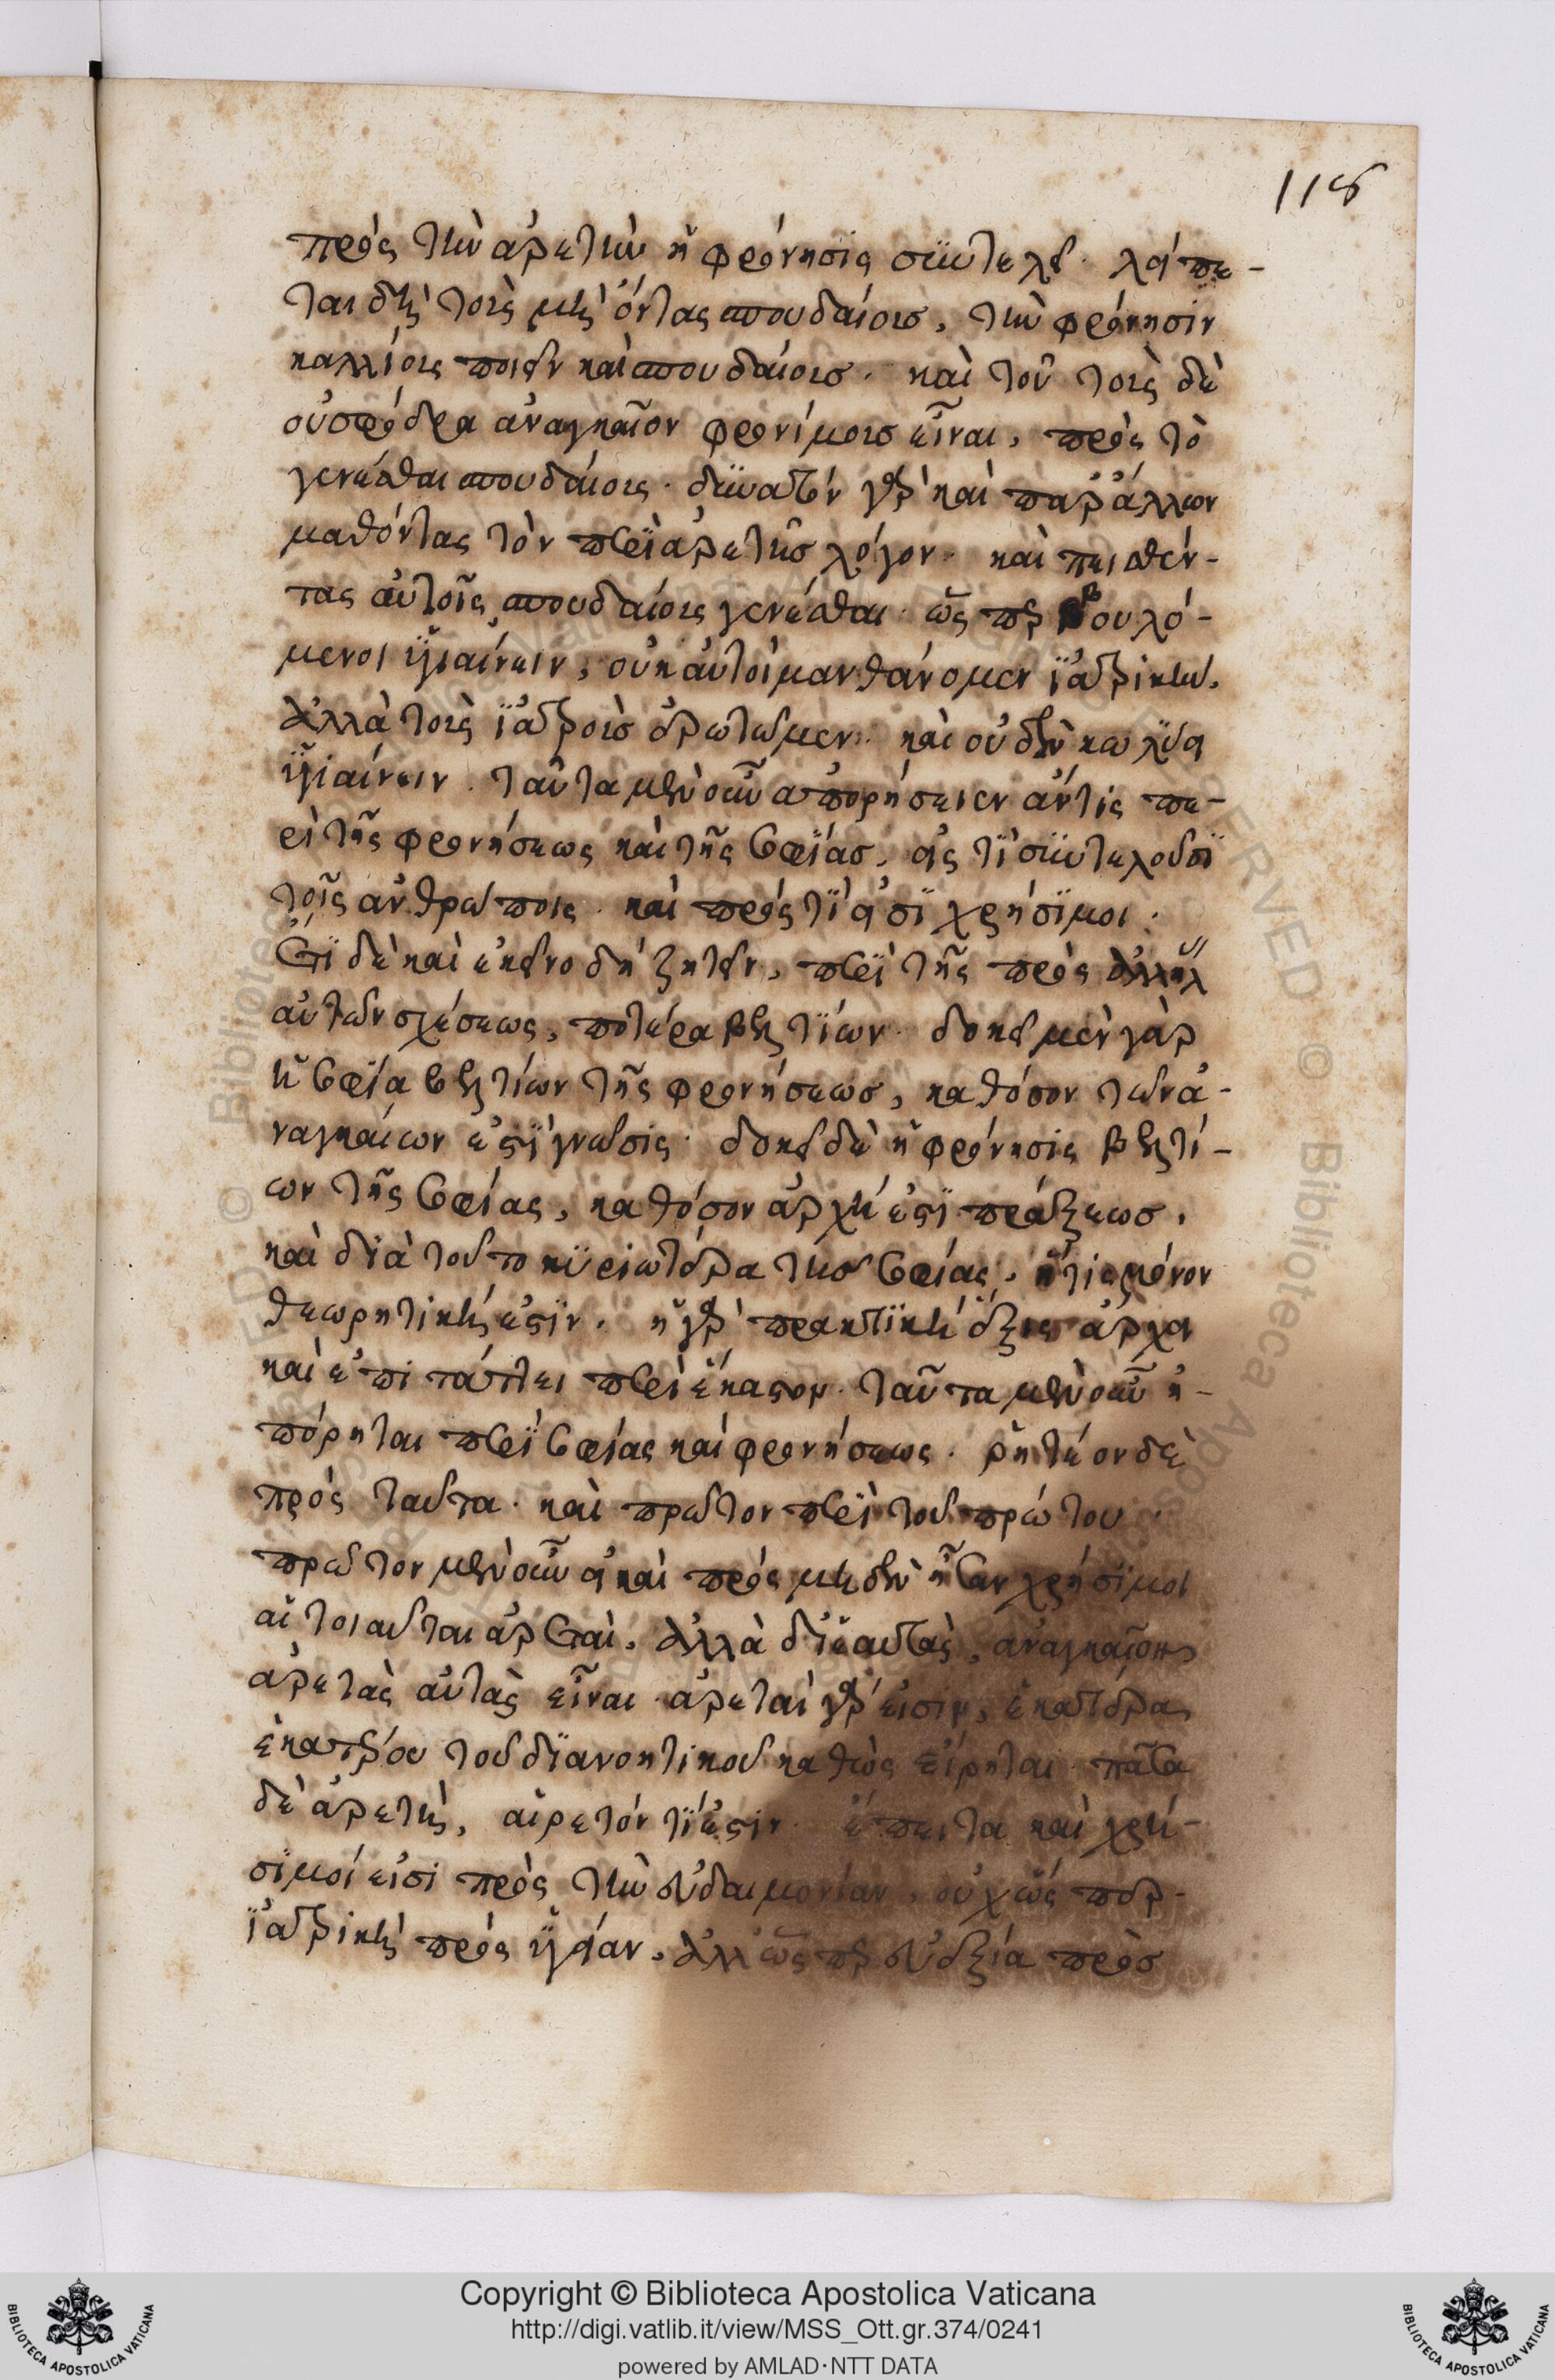 118
πρὸς τὴν ἀρετὴν ἡ φρόνησις συντελεῖ. λείπε-
ται δὴ τοὺς μὴ ὄντας σπουδαίους, τὴν φρόνησιν
καλλίους ποιεῖν καὶ σπουδαίους. καὶ τοῦ τοὺς δὲ
οὐ σφόδρα ἀναγκαῖον φρονίμους εἶναι, πρὸς τὸ
γενέσθαι σπουδαίους. δυνατὸν γὰρ καὶ παρ' ἄλλων
μαθόντας τὸν περὶ ἀρετῆς λόγον. καὶ πεισθέν-
τας αὐτοῖς, σπουδαίους γενέσθαι. ὥσπερ βουλό-
μενοι ὑγιαίνειν, οὐκ αὐτοὶ μανθάνομεν ἰατρικὴν,
ἀλλὰ τοὺς ἰατροὺς ἐρωτῶμεν. καὶ οὐδὲν κωλύει
ὑγιαίνειν. ταῦτα μὲν οὖν ἀπορήσειεν ἄν τις πε-
ρὶ τῆς φρονήσεως καὶ τῆς σοφίας, εἰς τί συντελοῦσι
τοῖς ἀνθρώποις. καὶ πρὸς τί εἰσι χρήσιμοι.
Ἔτι δὲ καὶ ἐκεῖνο δὴ ζητεῖν, περὶ τῆς πρὸς ἀλλήλ
αὐτῶν σχέσεως, ποτέρα βελτίων. δοκεῖ μὲν γὰρ
ἡ σοφία βελτίων τῆς φρονήσεως, καθόσον τῶν ἀ-
ναγκαίων ἐστὶ γνῶσις. δοκεῖ δὲ ἡ φρόνησις βελτί-
ων τῆς σοφίας, καθόσον ἀρχή ἐστι πράξεως,
καὶ διὰ τοῦτο κυριωτέρα τῆς σοφίας, ἥτις μόνον
θεωρητική ἐστιν. ἡ γὰρ πρακτικὴ ἕξις ἄρχει
καὶ ἐπιτάττει περὶ ἕκαστον. ταῦτα μὲν οὖν ἠ-
πόρηται περὶ σοφίας καὶ φρονήσεως. ῥητέον δὲ
πρὸς ταῦτα. καὶ πρῶτον περὶ τοῦ πρώτου.
πρῶτον μὲν οὖν εἰ καὶ πρὸς μηδὲν ἦσαν χρήσιμοι
αἱ τοιαῦται ἀρεταὶ, ἀλλὰ δι' ἑαυτὰς, ἀναγκαῖον
ἀρετὰς αὐτὰς εἶναι. ἀρεταὶ γάρ εἰσιν, ἑκατέρα
ἑκατέρου τοῦ διανοητικοῦ καθὼς εἴρηται. πᾶσα
δὲ ἀρετὴ, αἱρετόν τί ἐστιν. ἔπειτα καὶ χρή-
σιμοί εἰσι πρὸς τὴν εὐδαιμονίαν, οὐχ ὥσπερ
ἰατρικὴ πρὸς ὑγείαν, ἀλλ' ὥσπερ εὐεξία πρὸς
Copyright © Biblioteca Apostolica Vaticana
http://digi.vatlib.it/view/MSS_Ott.gr.374/0241
powered by AMLAD·NTT DATA
BIBLIOTECA APOSTOLICA VATICANA
BIBLIOTECA APOSTOLICA VATICANA